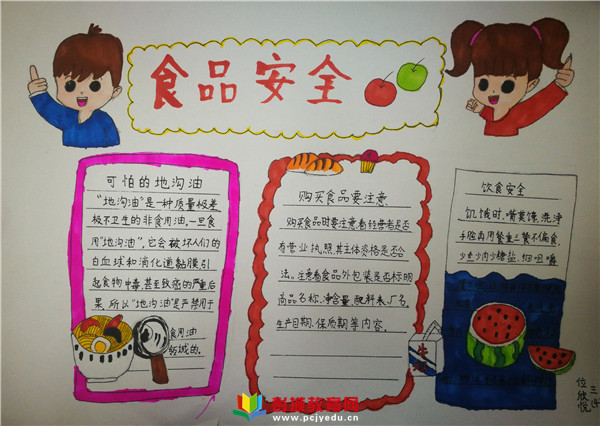 食品安全
可怕的地沟油
“地沟油”是一种质量极差
极不卫生的非食用油,一旦食
用“地沟油”,它会破坏人们的
白血球和消化道黏膜,引
起食物中毒,甚至致癌的严重后
果,所以“地沟油”是严禁用于
食用油
领域的。
购买食品要注意
购买食品时要注意看经营者是否
有营业执照,其主体资格是否合
法。注意看食品外包装是否标明
商品名称,净含量,配料表,厂名,
生产日期,保质期等内容。
饮食安全
饥饿时,嘴莫馋,洗净
手脸再用餐,一日三餐不偏食,
少盐少肉少糖盐,细咀嚼
牛奶
三
位欣悦
www.pcjyedu.cn